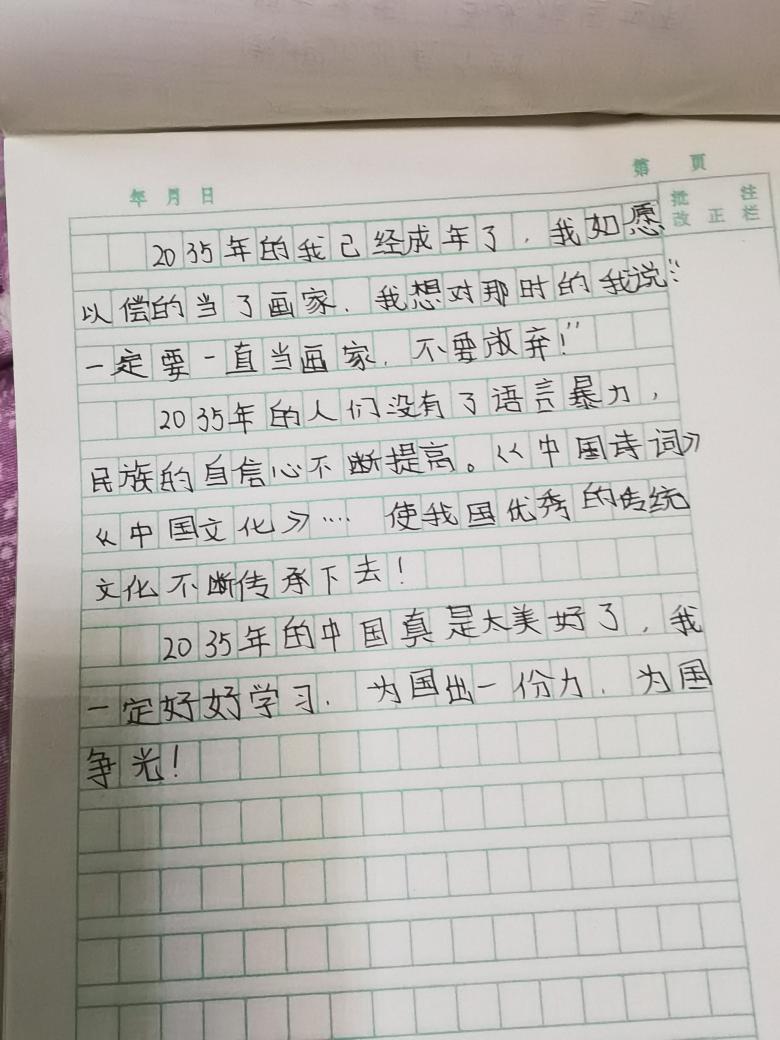 年 月 日
第 頁
批 注
改 正 栏
2035年的我已经成年了，我如愿
以偿的当了画家，我想对那时的我说："
一定要一直当画家，不要放弃！"
2035年的人们没有了语言暴力，
民族的自信心不断提高。《中国诗词》
《中国文化》…… 使我国优秀的传统
文化不断传承下去！
2035年的中国真是太美好了，我
一定好好学习，为国出一份力，为国
争光！